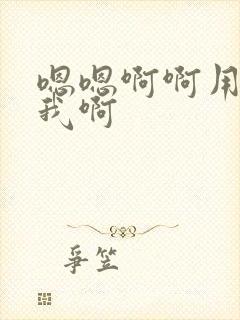 嗯嗯啊啊用
我啊
爭笠